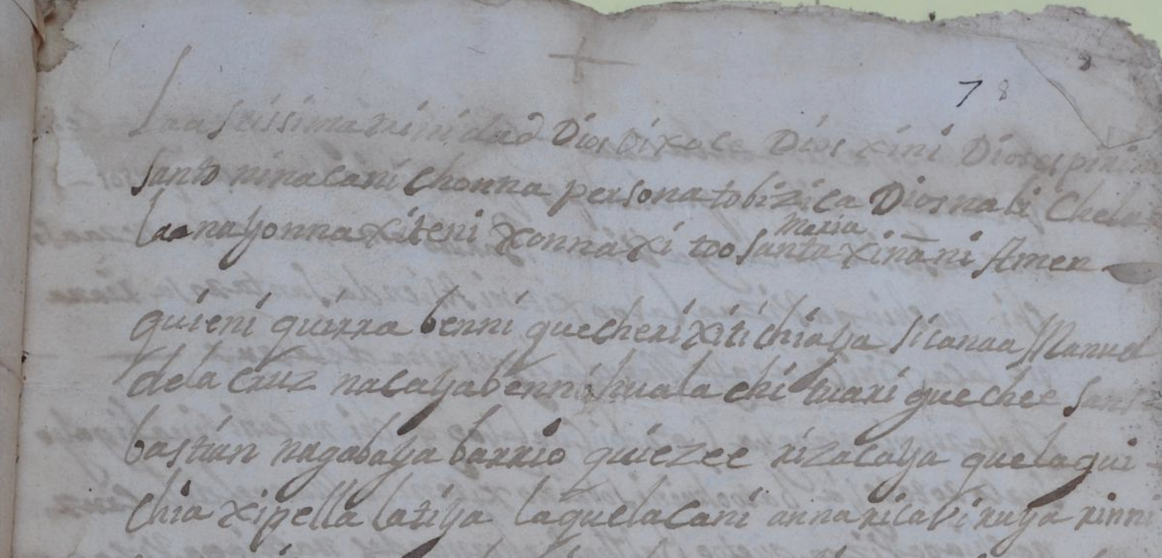 78
Laa sctissima rinidad Dios bixoce Dios xini Dios espiri
santo ninacani chonna persona tobizica Dios nali Chela
laa nayonna xiteni xonnaxi too santa Maria xinãni Amen
quieni quirra benni quecherixitichiaya sicanaa Manuel
dela cruz nacaya benni huala chi luari quechee san
bastian nagabaya barrio quiezee rizacaya quelaqui-
chia xipella latiya laquelacani annaricabiruya rinni